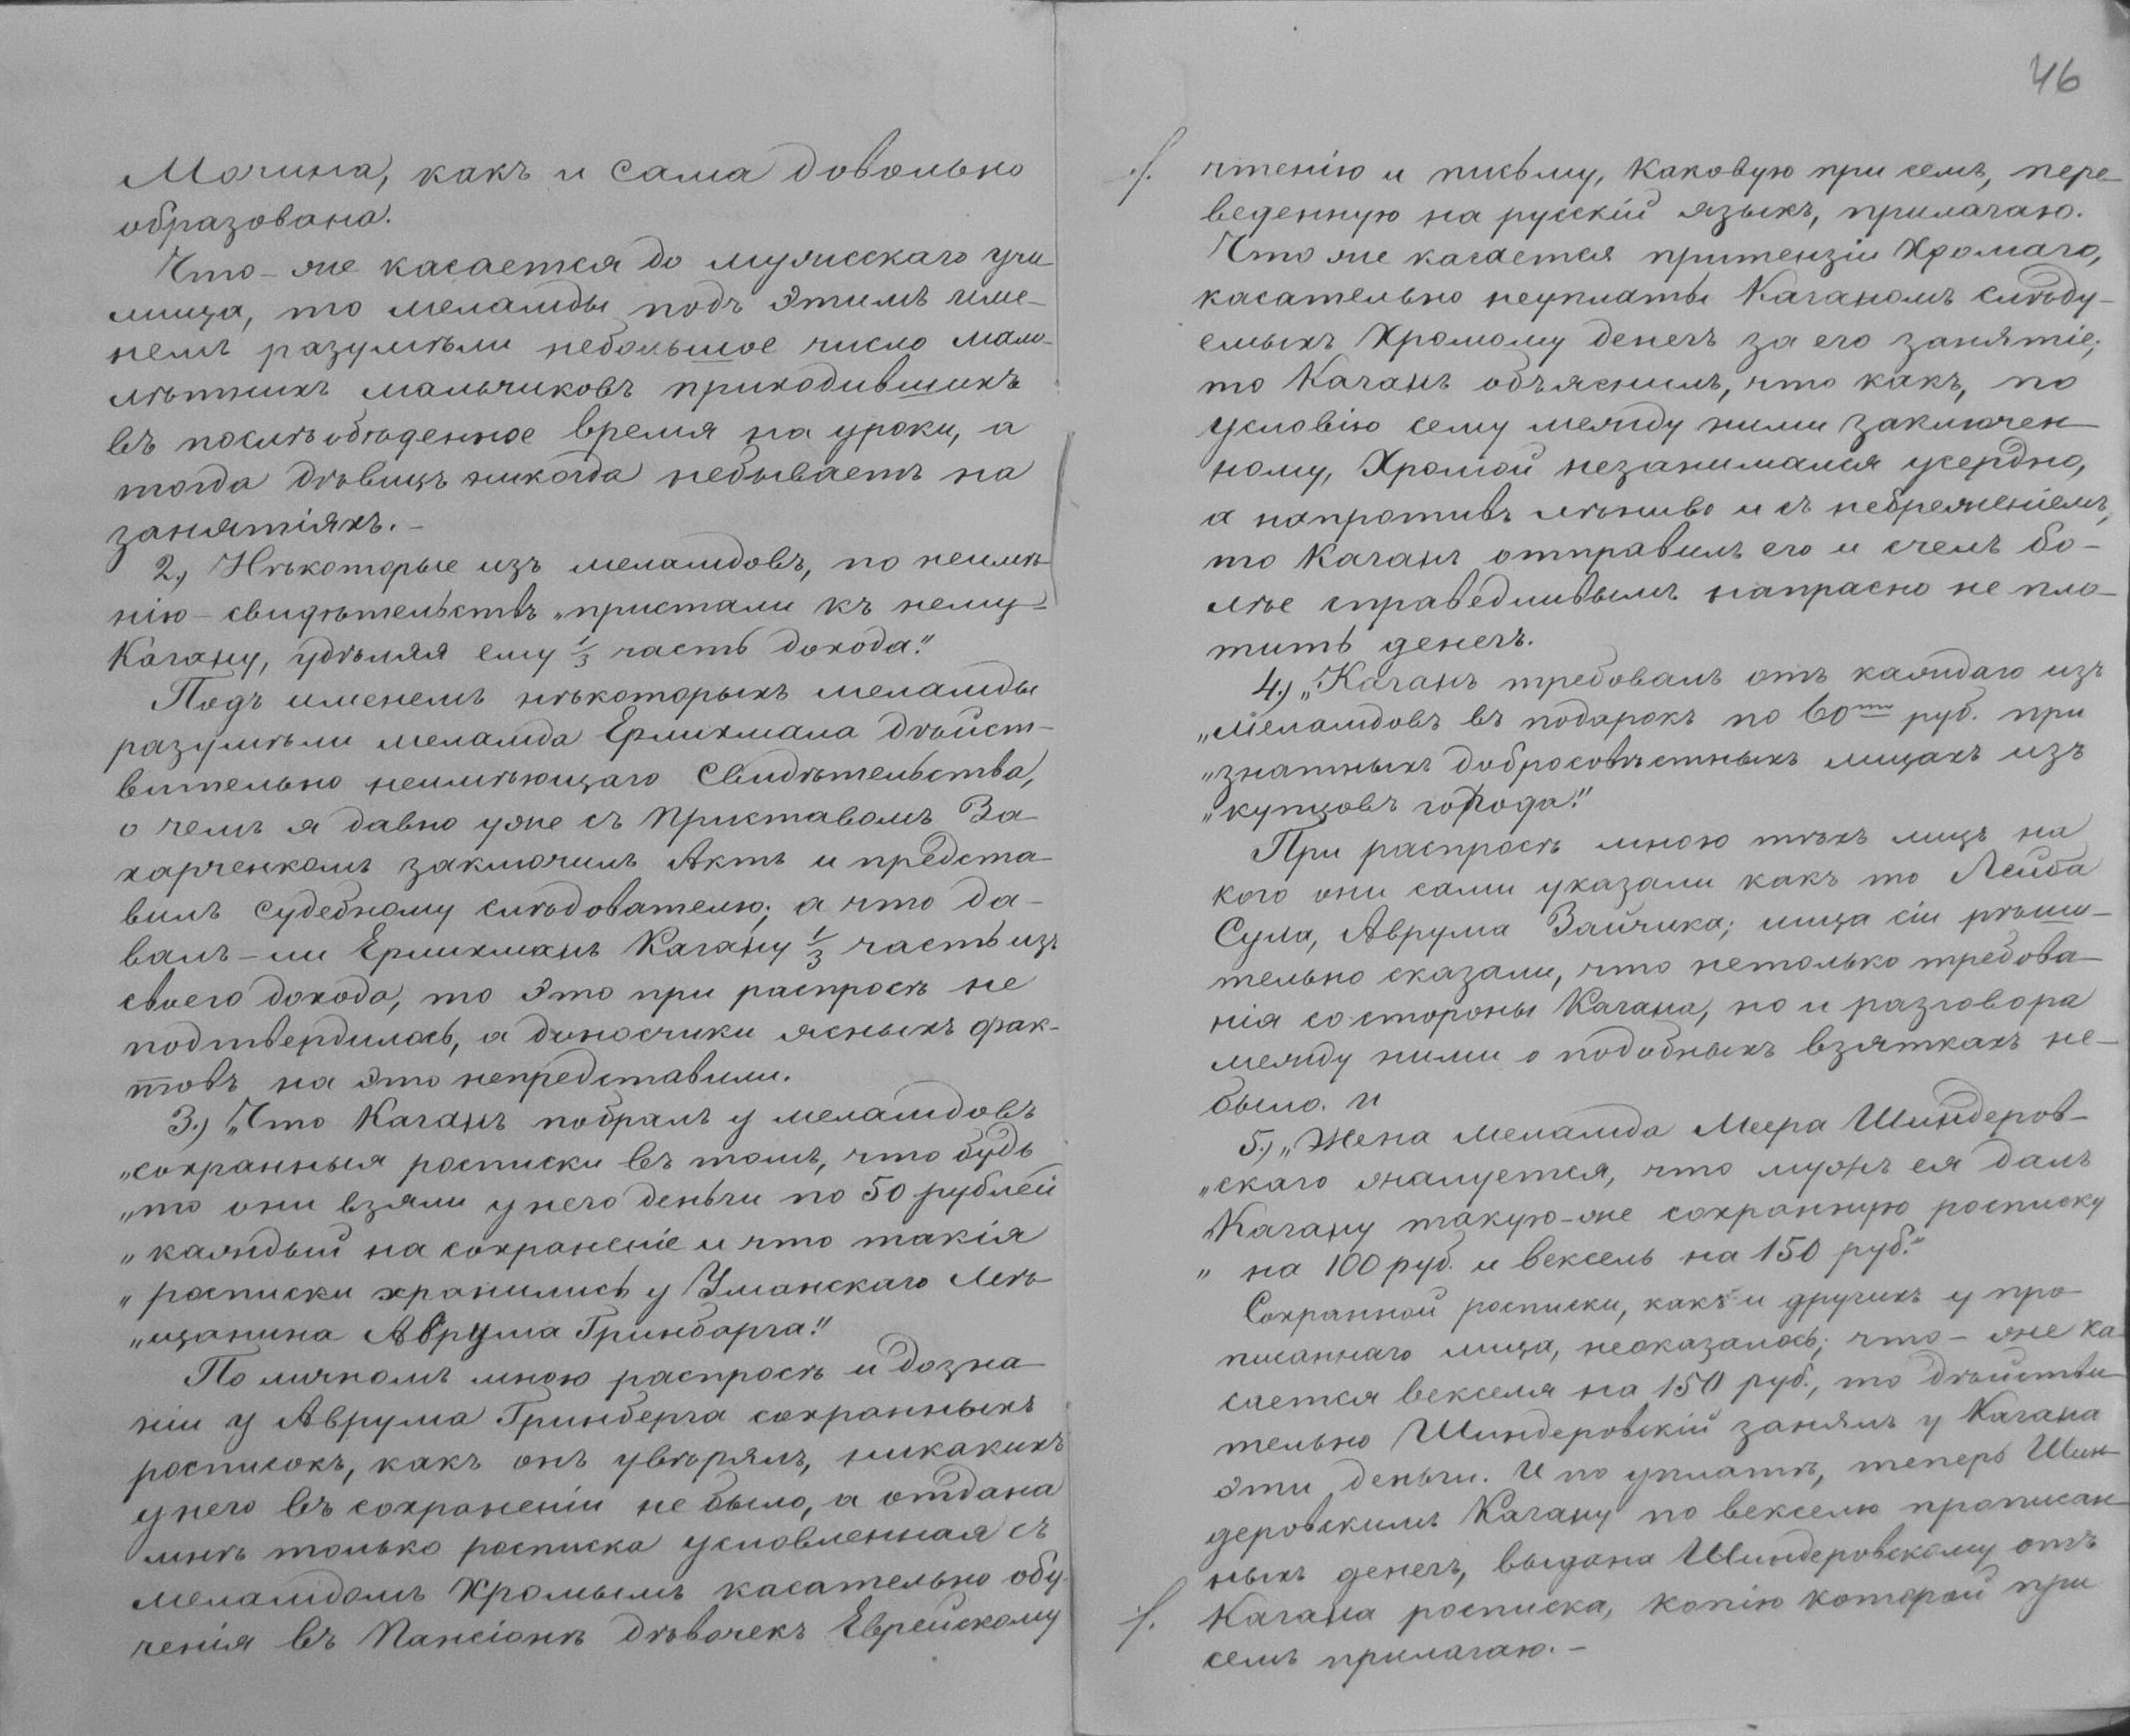 Могина, какъ и сама довольно
образована.
Что-же касается до мужескаго учи-
лища, то меламды подъ этимъ име-
немъ разумѣли небольшое число мало-
лѣтнихъ мальчиковъ приходившихъ
въ послѣобѣденное время на уроки, а
тогда дѣвицъ никогда небываетъ на
занятіяхъ.-
2.) Нѣкоторые изъ меламдовъ, по неимѣ-
нію-свидѣтельствъ „пристали къ нему=
Кагану, удѣляя ему 1/3 часть дохода."
Подъ именемъ нѣкоторыхъ меламды
разумѣли меламда Ерлихмана дѣйст-
вительно неимѣющаго Свидѣтельства,
о чемъ я давно уже съ Приставомъ За-
харченкомъ заключилъ Актъ и предста-
вилъ Судебному слѣдователю; а что да-
валъ-ли Ерлихманъ Кагану 1/3 часть изъ
своего дохода, то это при распросѣ не
подтвердилось, а доносчики ясныхъ фак-
товъ на это непредставили.
3.) „Что Каганъ побралъ у меламдовъ
„сохранныя росписки въ томъ, что будь
„то они взяли у него деньги по 50 рублей
„каждый на сохраненіе и что такія
„росписки хранились у Уманскаго Мѣ-
„щанина Аврума Гринбарга."
По личномъ мною распросѣ и дозна-
ніи у Аврума Гринберга сохранныхъ
росписокъ, какъ онъ увѣрялъ, никакихъ
у него въ сохраненіи не было, а отдана
мнѣ только росписка условленная съ
меламдомъ Хромымъ касательно обу-
ченія въ Пансіонѣ дѣвочекъ Еврейскому
46
·/. чтенію и письму, каковую при семъ, пере-
веденную на русскій языкъ, прилагаю.
Что же касается притензіи Хромаго,
касательно неуплаты Каганомъ слѣду-
емыхъ Хромому денегъ за его занятіе;
то Каганъ объяснилъ, что какъ, по
условію сему между ними заключен-
ному, Хромой незанимался усердно,
а напротивъ лѣниво и съ небреженіемъ,
то Каганъ отправилъ его и счелъ бо-
лѣе справедливымъ напрасно не пла-
тить денегъ.
4.) „Каганъ требовалъ отъ каждаго изъ
„Меламдовъ въ подарокъ по 60ти руб. при
„знатныхъ добросовѣстныхъ лицахъ изъ
„купцовъ города."
При распросѣ мною тѣхъ лицъ на
кого они сами указали какъ то Лейба
Сула, Аврума Зайчика; лица сіи рѣши-
тельно сказали, что нетолько требова-
нія со стороны Кагана, но и разговора
между ними о подобныхъ взяткахъ не-
было. и
5.) „Жена меламда Меера Шиндеров-
„скаго жалуется, что мужъ ея далъ
„Кагану такую-же сохранную росписку
„ на 100 руб. и вексель на 150 руб."
Сохранной росписки, какъ и другихъ у про-
писаннаго лица, неоказалось; что-же ка-
сается векселя на 150 руб., то дѣйстви-
тельно Шиндеровскій занялъ у Кагана
эти деньги. И по уплатѣ, теперь Шин-
деровскимъ Кагану по векселю прописан-
ныхъ денегъ, выдана Шиндеровскому отъ
·/. Кагана росписка, копію которой при
семъ прилагаю.-